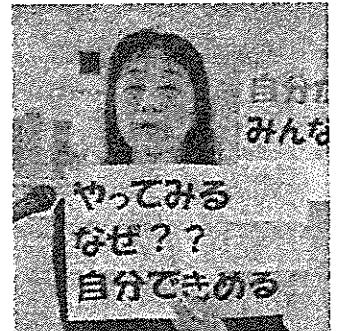 自分
みんな
やってみる
なぜ？？
自分できめる